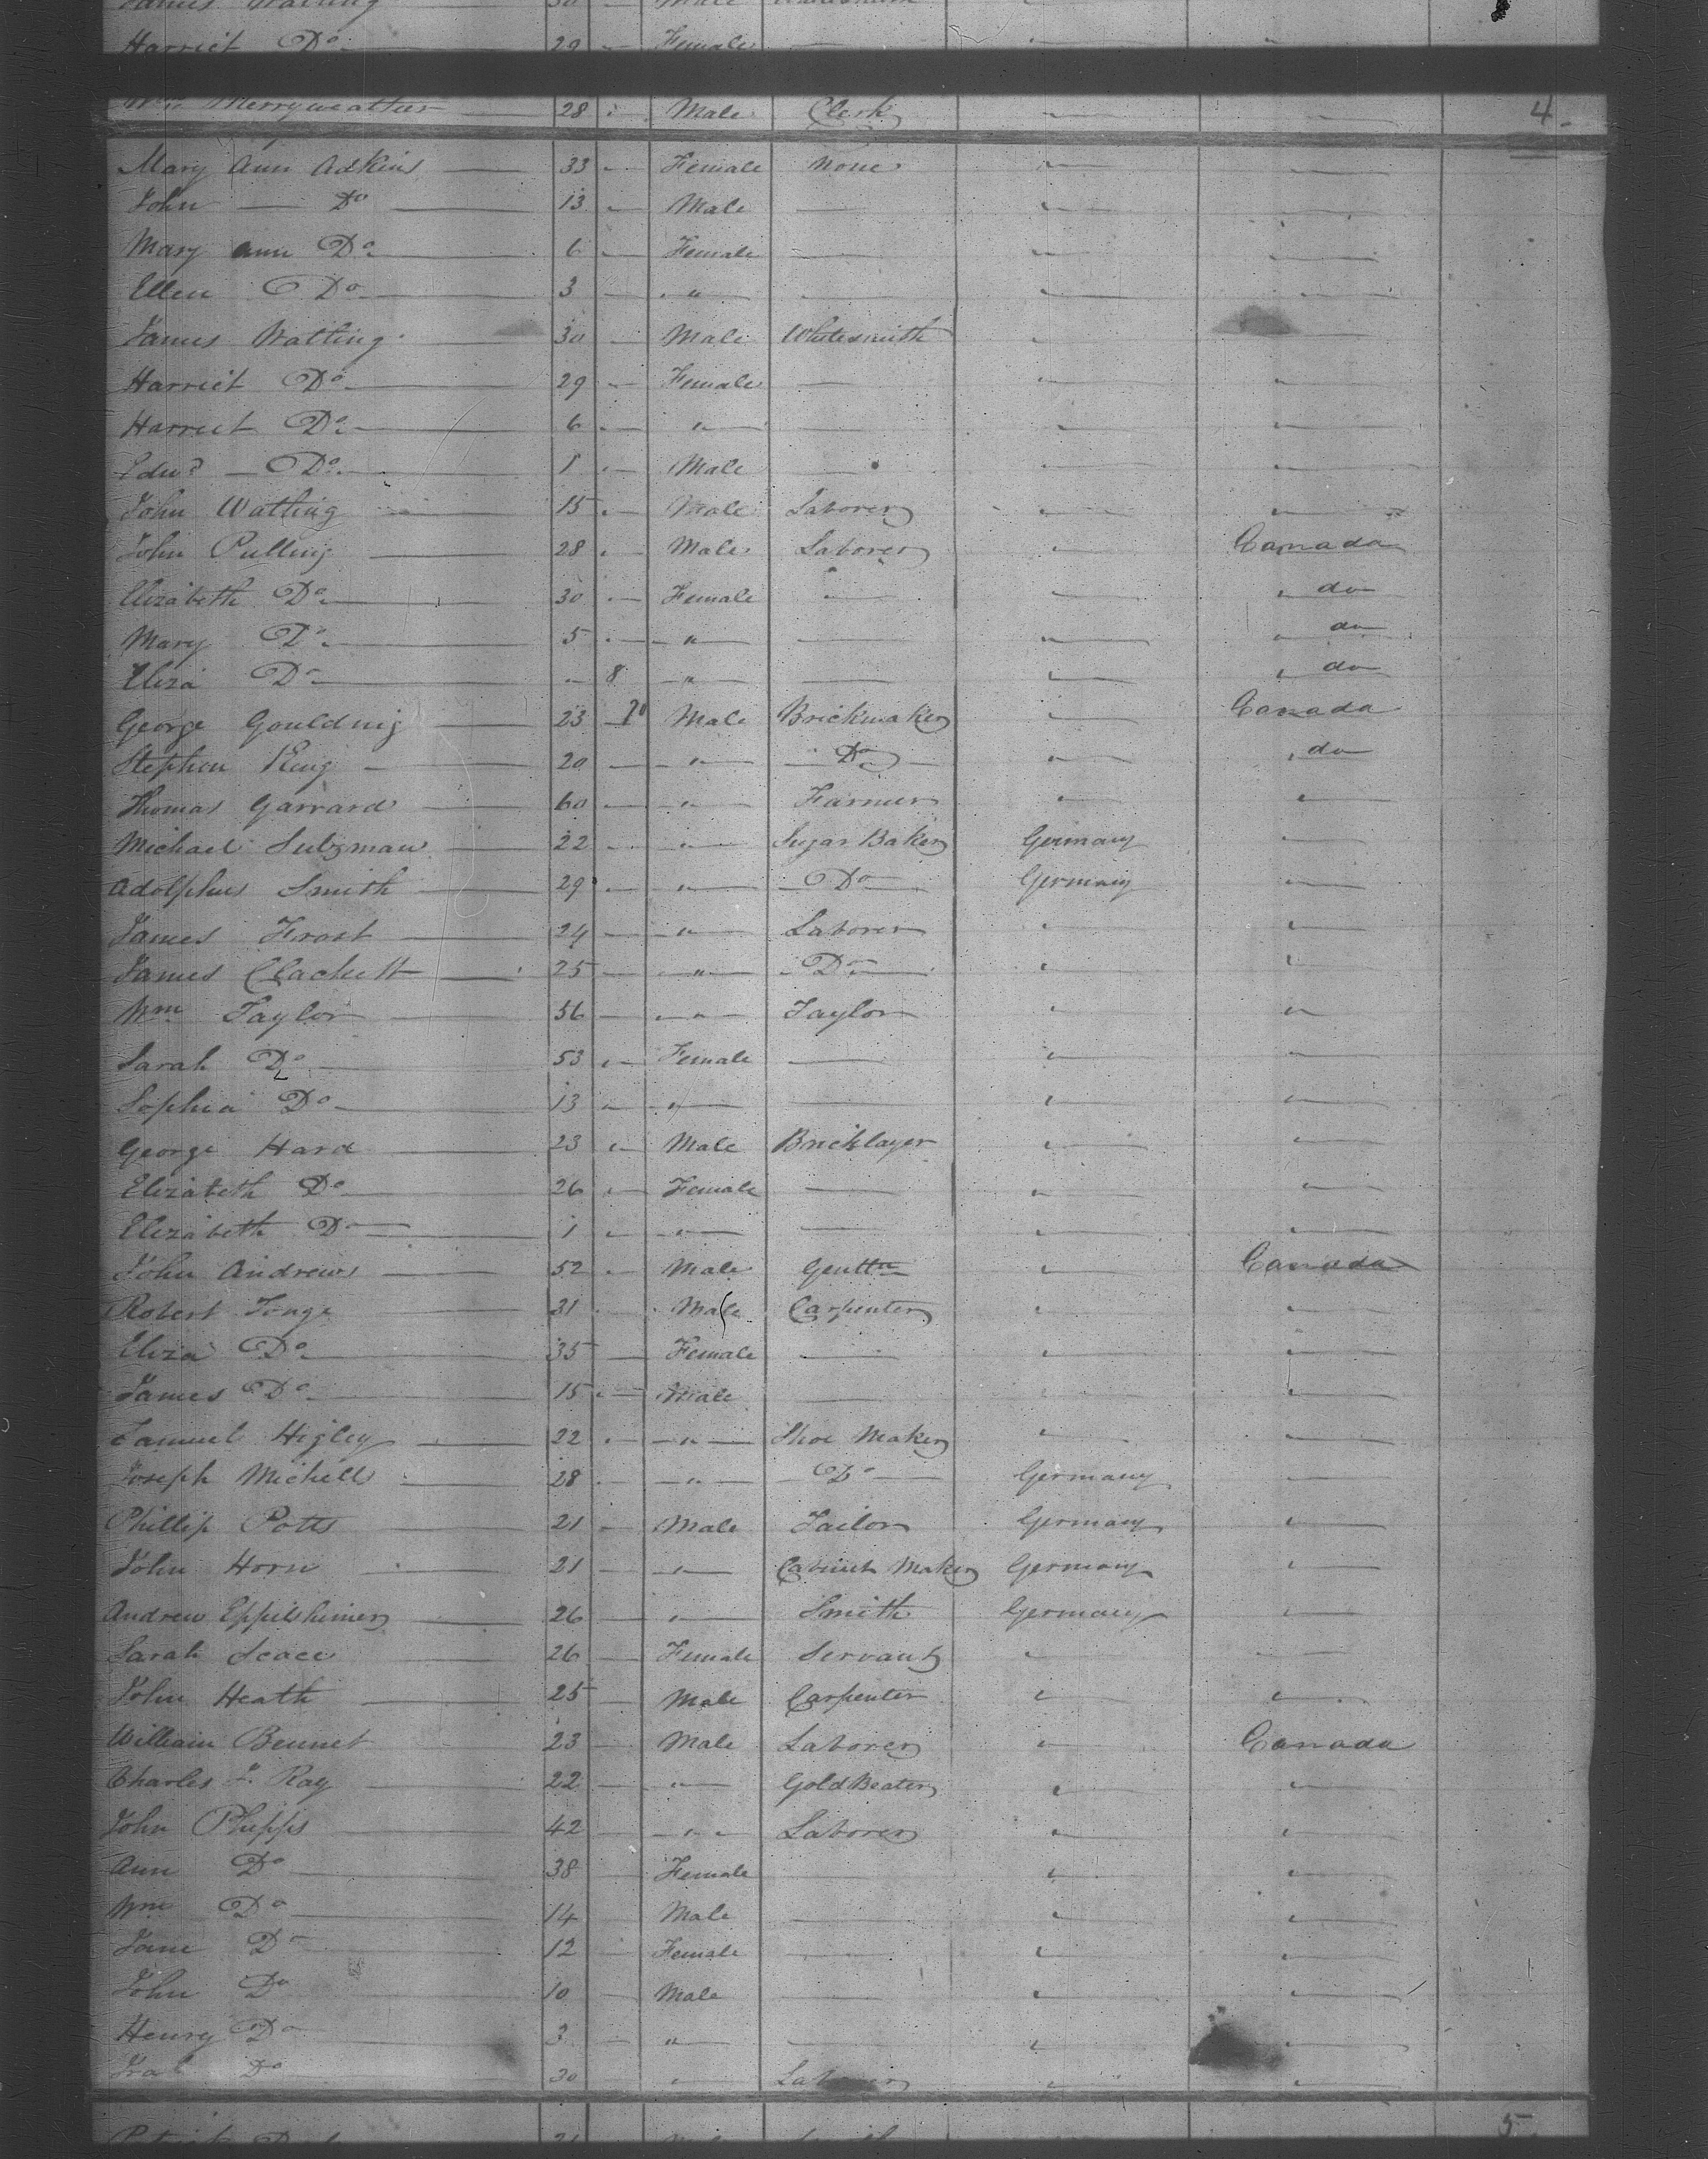 Harriet Do 29 " Female " "
Merryweather 28 " Male Clerk " " 4
Mary Ann Adkins 33 " Female None "
John Do 13 " Male "
Mary Ann Do 6 " Female "
Ellen Do 3 " " " "
James Watling 30 Male Whitesmith "
Harriet Do 29 " Female " "
Harriet Do 6 " " " "
Edwd Do 1 " Male " "
John Watling 15 " Male Laborer " "
John Pulling 28 " Male Laborer " Canada
Elizabeth Do 30 " Female " " " do
Mary Do 5 " " " " do
Eliza Do " 8 " " " do
George Goulding 23 Male Brickmaker " Canada
Stephen King 20 " Do " " do
Thomas Garrard 60 " Farmer " "
Michael Sulzman 22 " " Sugar Baker Germany "
Adolphus Smith 29 " " Do Germany "
James Frost 24 " Laborer " "
James Clackett 25 " Do " "
Wm Taylor 56 " Taylor " "
Sarah Do 53 " Female " "
Sophia Do 13 " " " "
George Hard 23 " Male Bricklayer " "
Elizabeth Do 26 " Female " "
Elizabeth Do 1 " " " "
John Andrews 52 " Male Gentln " Canada
Robert Tonge 31 Male Carpenter " "
Eliza Do 35 Female " "
James Do 15 " Male "
Samuel Higley 22 " " Shoe Maker " "
Joseph Michell 28 " " Do Germany "
Phillip Potts 21 " Male Tailor Germany "
John Horn 21 " Cabinet Maker Germany "
Andrew Eppilshimer 26 " Smith Germany "
Sarah Scace 26 Female Servant "
John Heath 25 Male Carpenter " "
William Bennet 23 Male Laborer " Canada
Charles Ray 22 " Gold Beater " "
John Phipps 42 " Laborer " "
Ann Do 38 Female " "
Wm Do 14 Male " "
Jane Do 12 Female " "
John Do 10 Male " "
Henry Do 3 " " "
Do 30 " Laborer " "
5